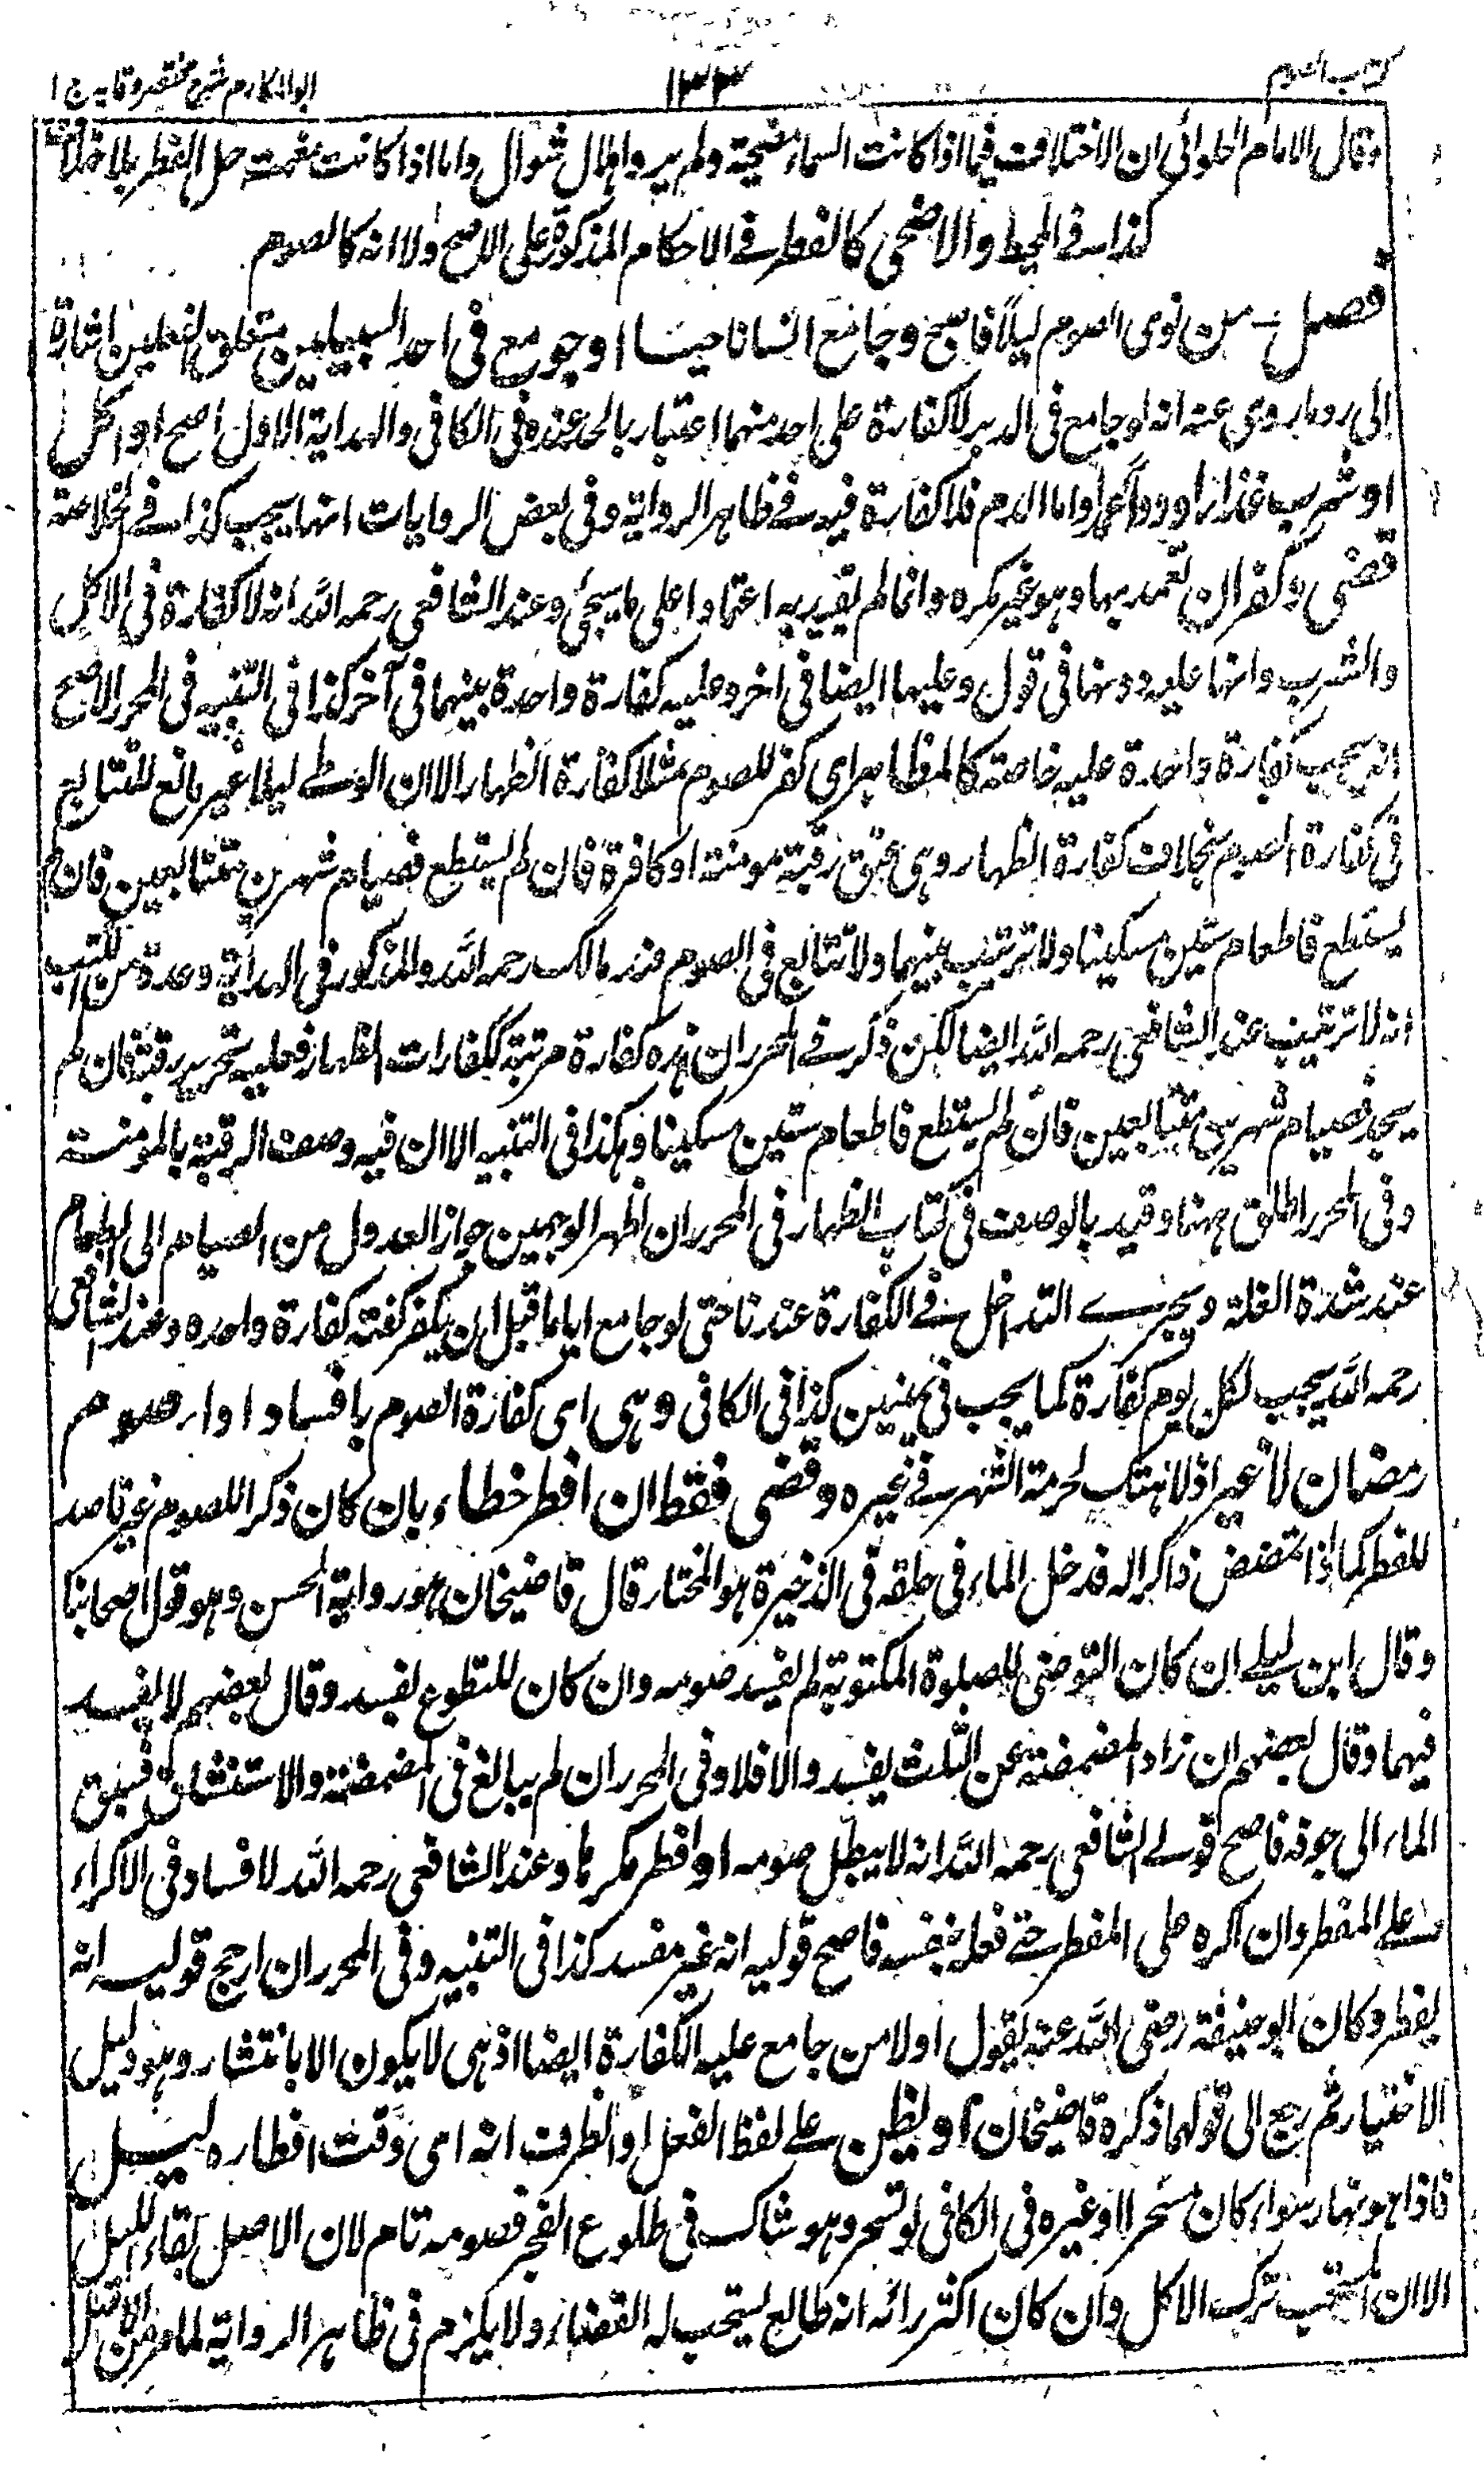 كتاب الصوم
١٣٣
ابو المكارم شرح مختصر وقايه ج ١
وقال الامام الحلوائى ان الاختلاف فيما اذا كانت السماء مضحية ولم يروا هلال شوال واما اذا كانت مغيمة حل الفطر بلا خلاف
كذا فى المحيط والاضحى كالفطر فى الاحكام المذكورة على الاصح ولا انه كالصوم
فصل من نوى الصوم ليلا فاصبح وجامع انسانا حيا او جومع فى احد السبيلين متعلق الفعلين اشارة
الى رد ما روى عنه انه لو جامع فى الدبر لا كفارة على احد منهما اعتبار بالحد عنده فى الكافى والهداية الاول اصح او اكل
او شرب غذاء او دواء عمدا واما الدم فلا كفارة فيه فى ظاهر الرواية وفى بعض الروايات انها يجب كذا فى الخلاصة
قضى وكفر ان تعمد بها وهو غير مكره وانما لم يقيد به اعتمادا على ما سيجئ وعند الشافعى رحمه الله انه لا كفارة فى الاكل
والشرب وانها عليه دونها فى قول وعليها ايضا فى اخر وعليه كفارة واحدة بينهما فى آخر كذا فى التنبيه فى المحرر الاصح
انه يجب كفارة واحدة عليه خاصة كالمظاهر اى كفر للصوم مثلا كفارة الظهار الا ان الوطى ليلا غير مانع للتتابع
فى كفارة الصوم بخلاف كفارة الظهار وهى عتق رقبة مومنة او كافرة فان لم يستطع فصيام شهرين متتابعين فان لم
يستطع فاطعام ستين مسكينا ولا ترتيب بينهما ولا تتابع فى الصوم عند مالك رحمه الله والمذكور فى الهداية وعدة من الكتب
انه لا ترتيب عند الشافعى رحمه الله ايضا لكن ذكر فى المحرر ان هذه كفارة مرتبة ككفارات الظهار فعليه تحرير رقبة فان لم
يجد فصيام شهرين متتابعين فان لم يستطع فاطعام ستين مسكينا وهكذا فى التنبيه الا ان فيه وصف الرقبة بالمومنة
وفى المحرر اطلق ههنا وقيد بالوصف فى كتاب الظهار فى المحرر ان اظهر الوجهين جواز العدول من الصيام الى الطعام
عند شدة الغلمة ويجرى التداخل فى الكفارة عندنا حتى لو جامع اياما قبل ان يكفر كفته كفارة واحده وعند الشافعى
رحمه الله يجب لكل يوم كفارة كما يجب فى يمينين كذا فى الكافى وهى اى كفارة الصوم بافساد اداء صوم
رمضان لا غير اذ لا هتك لحرمة الشهر فى غيره وقضى فقط ان افطر خطاء بان كان ذكرا للصوم غير قاصد
للفطر كما اذا تمضمض ذاكرا له فدخل الماء فى حلقه فى الذخيرة هو المختار قال قاضيخان هو رواية الحسن وهو قول اصحابنا
وقال ابن ليلى ان كان التوضى للصلوة المكتوبة لم يفسد صومه وان كان للتطوع يفسد وقال بعضهم لا يفسد
فيهما وقال بعضهم ان زاد المضمضة عن الثلث يفسد والا فلا وفى المحرر ان لم يبالغ فى المضمضة والاستنشاق فسبق
الماء الى جوفه فاصح قولى الشافعى رحمه الله انه لا يبطل صومه او افطر مكرها وعند الشافعى رحمه الله لا فساد فى الاكراه
على المفطر وان اكره على المفطر حتى فعله بنفسه فاصح قوليه انه غير مفسد كذا فى التنبيه وفى المحرر ان ارجح قوليه انه
يفطر وكان ابو حنيفة رضى الله عنه يقول اولا من جامع عليه الكفارة ايضا اذ هى لا يكون الا بانتشار وهو دليل
الاختيار ثم رجع الى قولهما ذكره قاضيخان او يظن على لفظ الفعل او الظرف انه اى وقت افطاره ليل
فاذا هو نهار سواء كان متسحرا او غيره فى الكافى لو تسحر وهو شاك فى طلوع الفجر فصومه تام لان الاصل بقاء الليل
الا ان المستحب ترك الاكل وان كان اكثر رائه انه طالع يستحب له القضاء ولا يلزم فى ظاهر الرواية لما مر من ان